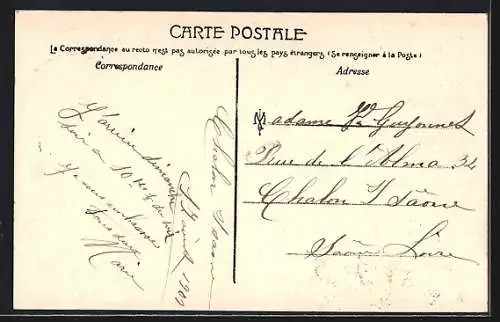 CARTE POSTALE
La Correspondance au recto n'est pas autorisée par tous les pays étrangers (Se renseigner à la Poste)
Correspondance
Adresse
J'arrive dimanche
soir à 10
Je vous embrasse
Marie
1909
Chalon Saone
Madame Guyonnet
Rue de l'Alma 34
Chalon s/ Saône
Saône Loire